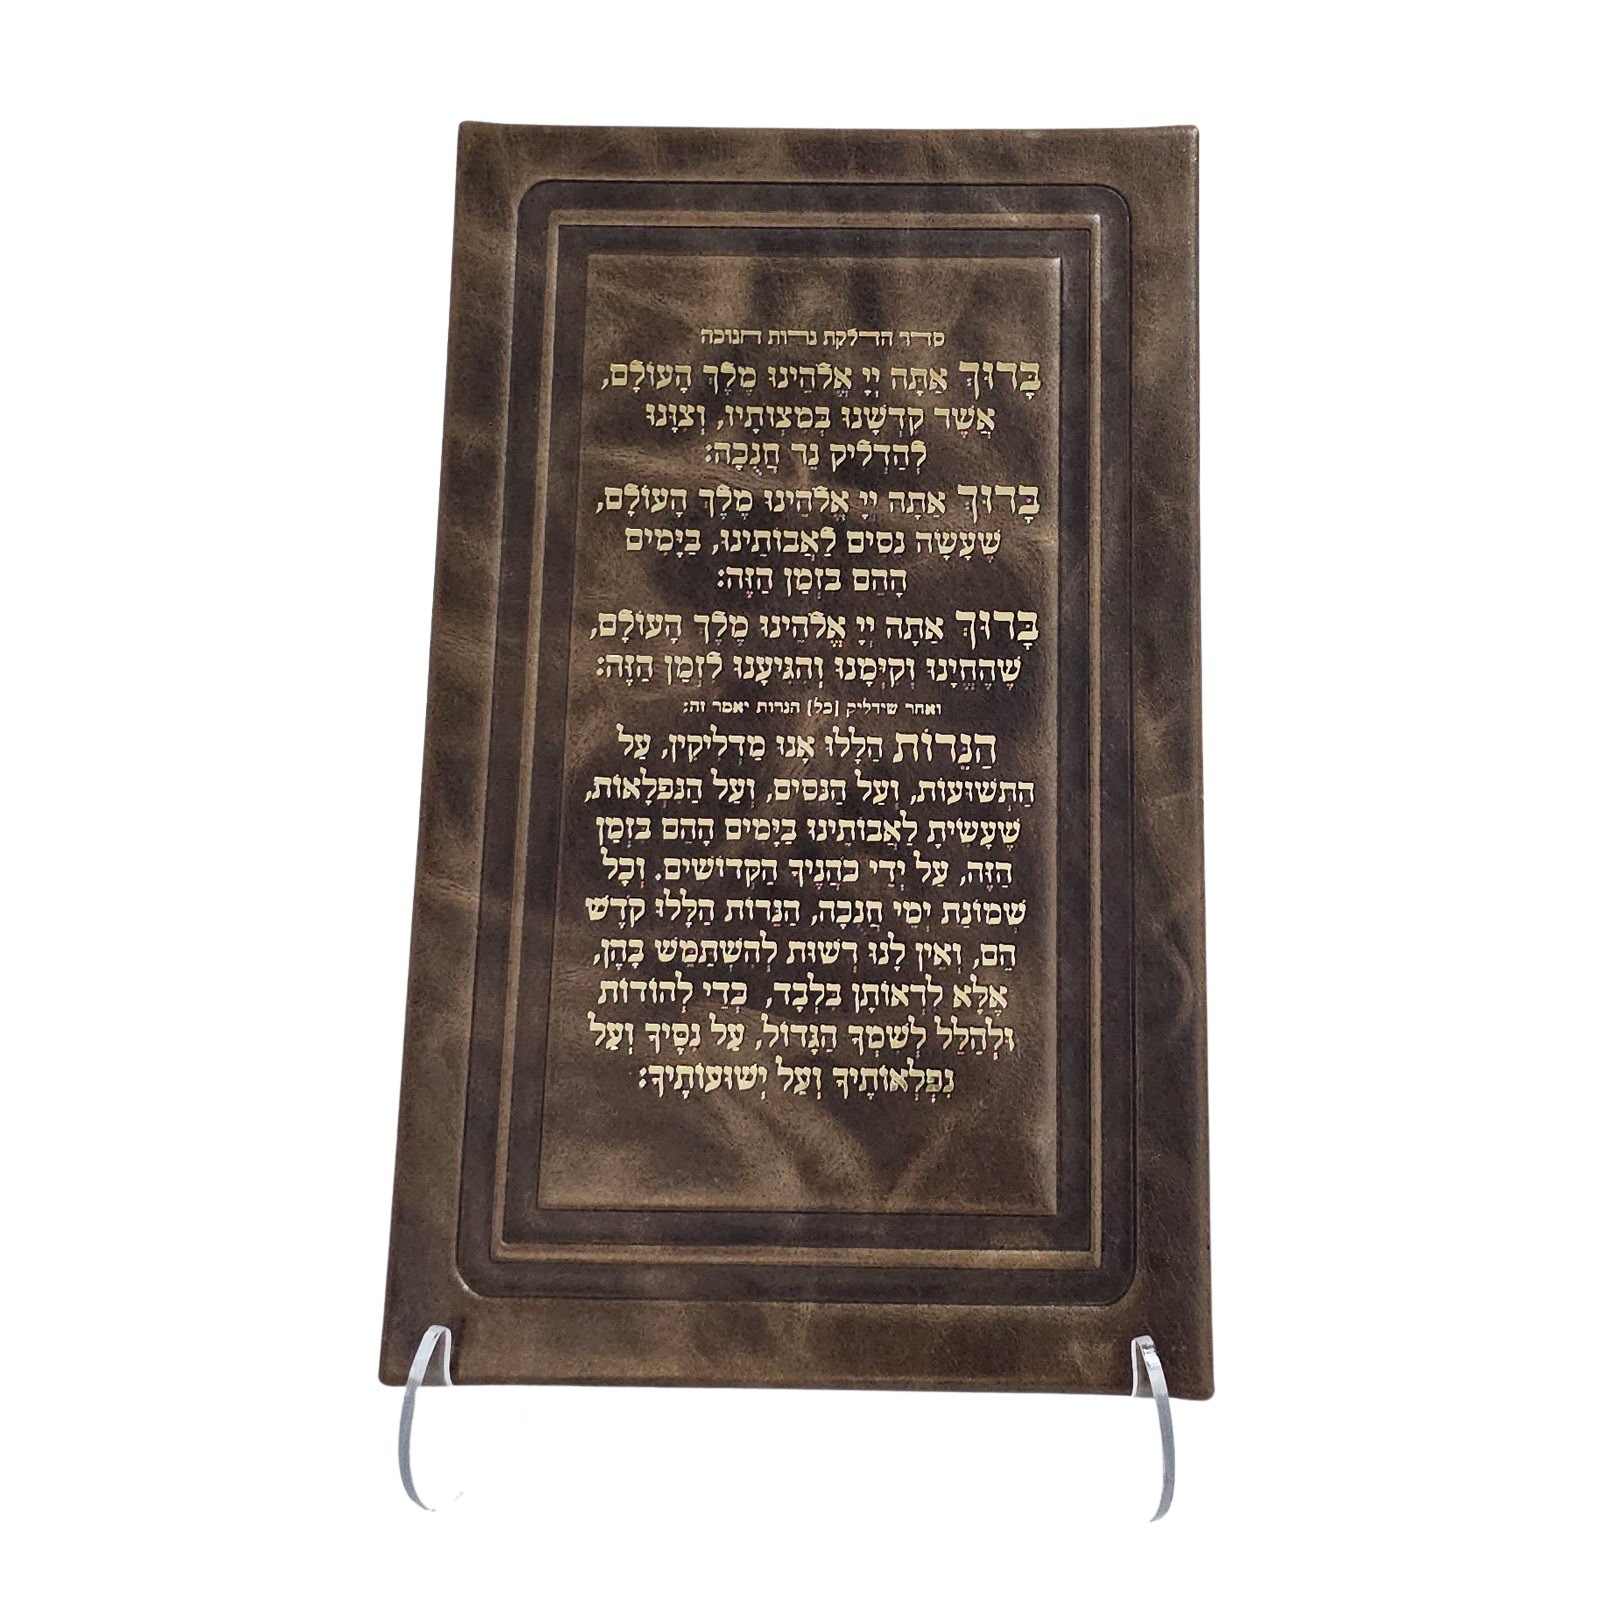 סדר הדלקת נרות חנוכה
בָּרוּךְ אַתָּה יְיָ אֱלֹהֵינוּ מֶלֶךְ הָעוֹלָם,
אֲשֶׁר קִדְּשָׁנוּ בְּמִצְוֹתָיו, וְצִוָּנוּ
לְהַדְלִיק נֵר חֲנֻכָּה:
בָּרוּךְ אַתָּה יְיָ אֱלֹהֵינוּ מֶלֶךְ הָעוֹלָם,
שֶׁעָשָׂה נִסִּים לַאֲבוֹתֵינוּ, בַּיָּמִים
הָהֵם בִּזְמַן הַזֶּה:
בָּרוּךְ אַתָּה יְיָ אֱלֹהֵינוּ מֶלֶךְ הָעוֹלָם,
שֶׁהֶחֱיָנוּ וְקִיְּמָנוּ וְהִגִּיעָנוּ לִזְמַן הַזֶּה:
ואחר שידליק [כל] הנרות יאמר זה:
הַנֵּרוֹת הַלָּלוּ אָנוּ מַדְלִיקִין, עַל
הַתְּשׁוּעוֹת, וְעַל הַנִּסִּים, וְעַל הַנִּפְלָאוֹת,
שֶׁעָשִׂיתָ לַאֲבוֹתֵינוּ בַּיָּמִים הָהֵם בִּזְמַן
הַזֶּה, עַל יְדֵי כֹּהֲנֶיךָ הַקְּדוֹשִׁים. וְכָל
שְׁמוֹנַת יְמֵי חֲנֻכָּה, הַנֵּרוֹת הַלָּלוּ קֹדֶשׁ
הֵם, וְאֵין לָנוּ רְשׁוּת לְהִשְׁתַּמֵּשׁ בָּהֶן,
אֶלָּא לִרְאוֹתָן בִּלְבָד, כְּדֵי לְהוֹדוֹת
וּלְהַלֵּל לְשִׁמְךָ הַגָּדוֹל, עַל נִסֶּיךָ וְעַל
נִפְלְאוֹתֶיךָ וְעַל יְשׁוּעוֹתֶיךָ: